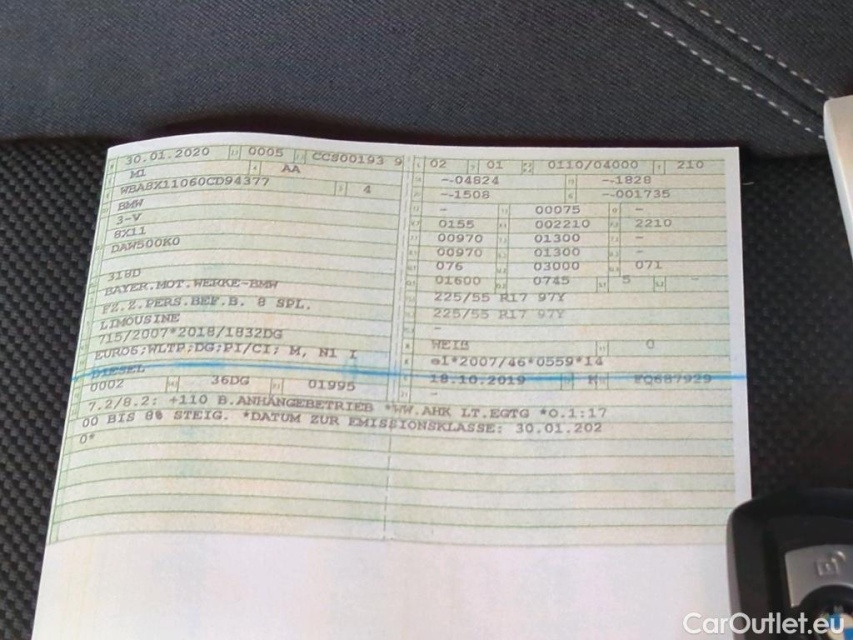 30.01.2020 0005 CCS00193 9
M1 AA
WBA8X11060CD94377 4
BMW
3-V
8X11
DAW500K0
318D
BAYER.MOT.WERKE-BMW
FZ.Z.PERS.BEF.B. 8 SPL.
LIMOUSINE
715/2007*2018/1832DG
EURO6;WLTP;DG;PI/CI; M, N1 I
DIESEL
0002 36DG 01995
02 01 0110/04000 210
—04824 —1828
—1508 —001735
- 00075 -
0155 002210 2210
00970 01300 -
00970 01300 -
076 03000 071
01600 0745 5 -
225/55 R17 97Y
225/55 R17 97Y
-
WEIß 0
e1*2007/46*0559*14
18.10.2019 K FQ687929
-
7.2/8.2: +110 B.ANHÄNGEBETRIEB *WW.AHK LT.EGTG *O.1:17
00 BIS 8% STEIG. *DATUM ZUR EMISSIONSKLASSE: 30.01.202
0*
CarOutlet.eu